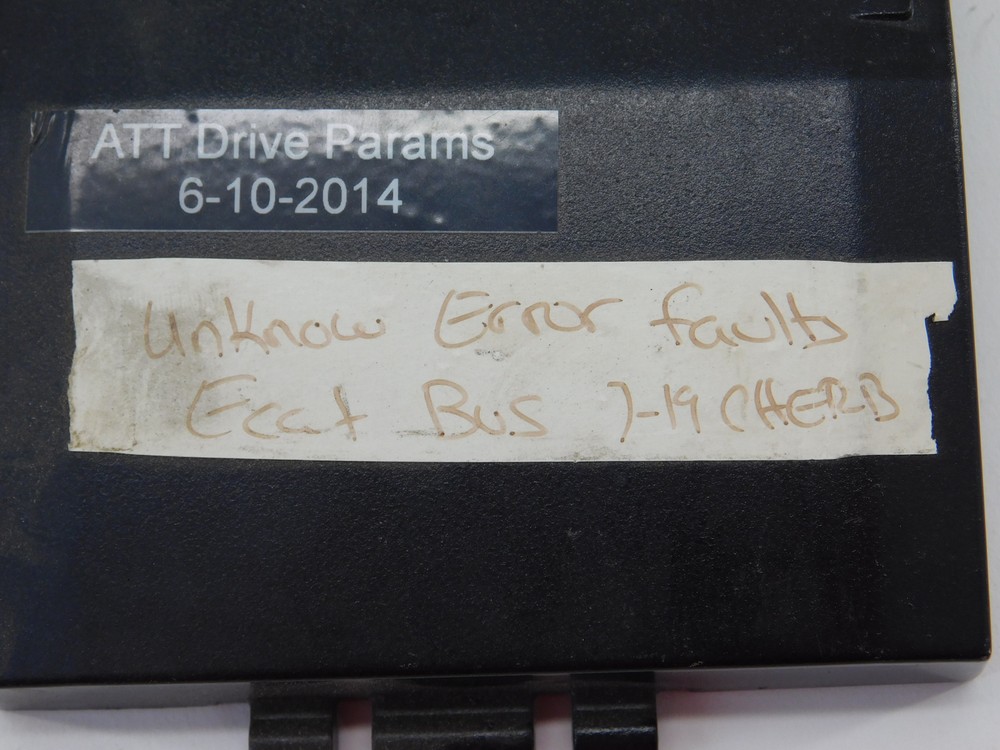 ATT Drive Params
6-10-2014
Unknow Error faults
Ecat Bus 7-19 CHERB